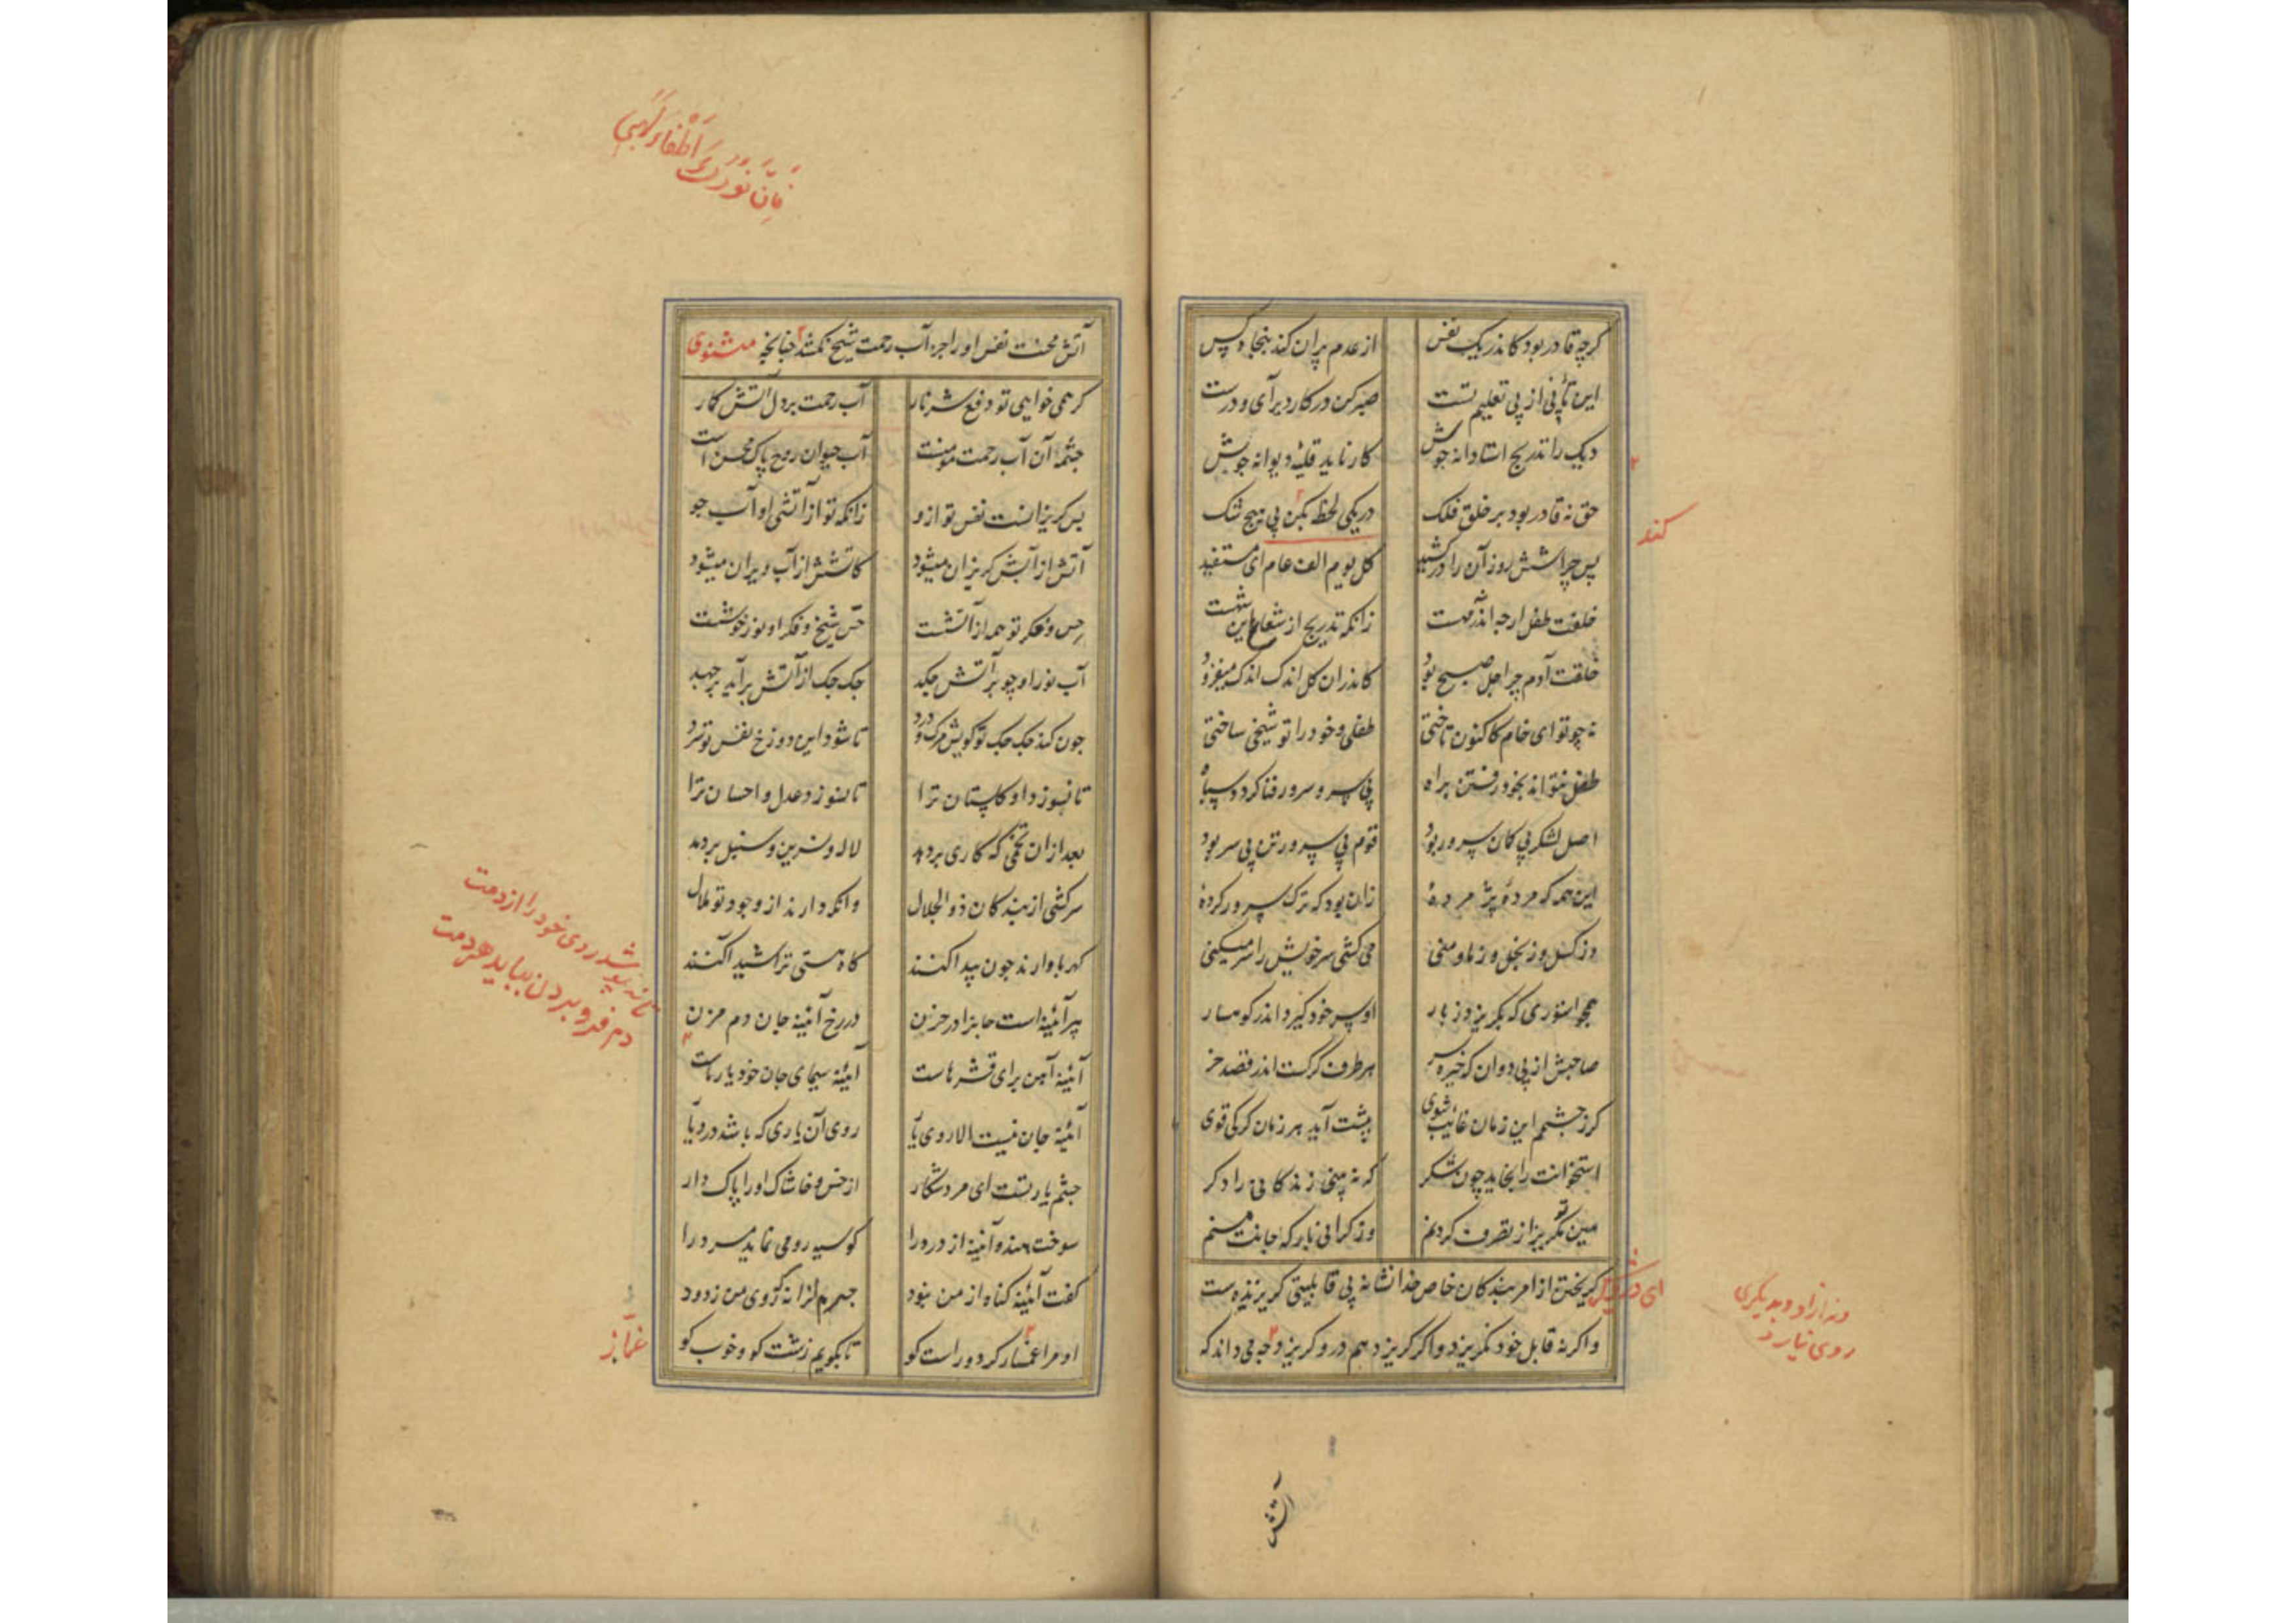 کرچه قادر بود کاندر یک نفس از عدم پران کند پنجاه کس
این تأنی از پی تعلیم تست صبر کن در کار دیر آی و درست
دیک را تدریج استادانه جوش کار ناید قلیهٔ دیوانه جوش
حق نه قادر بود بر خلق فلک در یکی لحظه بکن بی هیچ شک
پس چرا شش روز آن را درکشید کل یوم الف عام ای مستفید
خلقت طفل ارچه اندر نه مهست زانکه تدریج از شعار این شهست
خلقت آدم چرا چل صبح بود کاندران کل اندک اندک میفزود
نه چو تو ای خام کاکنون تاختی طفلی و خود را تو شیخی ساختی
طفل نتواند بخود رفتن براه بی سر و سرور فنا کردد سپاه
اصل لشکر بی کان سرور بود قوم بی سرور تن بی سر بود
این همه که مرده و پژمردهٔ زان بود که ترک سرور کردهٔ
وز کسل وز بخل وز ما و منی می کشی سر خویش را سر میکنی
همچو استوری که بکریزد ز بار او سر خود کیرد اندر کوهسار
صاحبش از پی دوان که خیره سر هر طرف کرکست اندر قصد خر
کر ز چشمم این زمان غائب شوی پیشت آید هر زمان کرکی قوی
استخوانت را بخاید چون شکر که نه بینی زندکانی را دکر
هین تو مکریز از تصرف کردنم وز کرانی بار که جانت منم
کریختن از امر بندکان خاص خدا نشانهٔ بی قابلیتی کریزنده است
و اکر نه قابل خود نکریزد و اکر کریزد هم درو کریزد چه می داند که
کند
ونه از او و بدیکری
روی نیارد
آتش
فان نورک اطفاء لهبی
آتش محنت نفس او را جز آب رحمت شیخ نکشد چنانچه مثنوی
کر همی خواهی تو دفع شر نار آب رحمت بر دل آتش کمار
چشمهٔ آن آب رحمت مومنست آب حیوان روح پاک محسن است
پس کریزانست نفس تو ازو زانکه تو از آتشی او آب جو
آتش از آبش کریزان میشود کاتشش از آب ویران میشود
حس و فکر تو همه از آتشست حس شیخ و فکر او نور خوشست
آب نور او چو بر آتش چکد چک چک از آتش برآید برجهد
چون کند چک چک تو کویش مرک و درد تا شود این دوزخ نفس تو سرد
تا نسوزد او کلستان ترا تا نسوزد عدل و احسان ترا
بعد ازان تخمی که کاری بر دهد لاله و نسرین و سنبل بر دهد
سرکشی از بندکان ذوالجلال وانکه دارند از وجود تو ملال
کهربا دارند چون پیدا کنند کاه هستی ترا شیدا کنند
پیر آئینه است جانرا در حزن در رخ آئینه جان دم مزن
آئینه آهن برای قشرهاست آئینه سیمای جان خود یار ماست
آئینه جان نیست الا روی یار روی آن یاری که باشد در دیار
چشم یار تست ای مرد شکار از خس و خاشاک او را پاک دار
سوخت هندو آئینه از درد را کو سیه رو می نماید مرد را
کفت آئینه کناه از من نبود جرم او را نه که روی من زدود
او مرا غماز کرد و راست کو تا بکویم زشت کو و خوب کو
تا نه پوشد روی خود را از دمت
دم فرو بردن بباید هر دمت
غماز